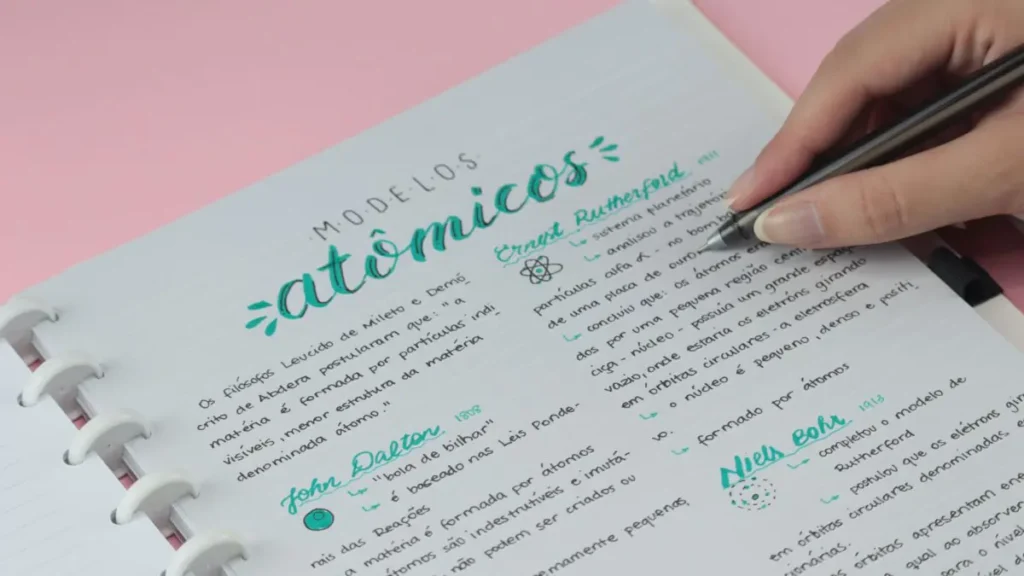 ·M·O·D·E·L·O·S·
atômicos
Os filósofos Leucido de Mileto e Demó
crito de Abdera postularam que: "a
matéria é formada por partículas indi
visíveis, menor estrutura da matéria
denominada átomo."
John Dalton 1808
"bola de bilhar"
é baseado nas Leis Ponde-
rais das Reações
a matéria é formada por átomos
átomos são indestrutíveis e imutá-
não podem ser criados ou
pequenas
Ernest Rutherford 1911
sistema planetário
analisou a trajetória
partículas alfa α - no bomb
de uma placa de ouro
concluiu que: os átomos
dos por uma pequena região
ciça - núcleo - possuiu um grande espaço
vazio, onde estaria os eletróns girando
em órbitas circulares - a eletrosfera
o núcleo é pequeno, denso e positi
vo.
formado por átomos
Niels Bohr 1913
completou o modelo de
Rutherford
postulou que os elétrons gira
órbitas circulares denominadas, e
em órbitas apresentam ene
cionárias.
qual ao absorver
para o nível